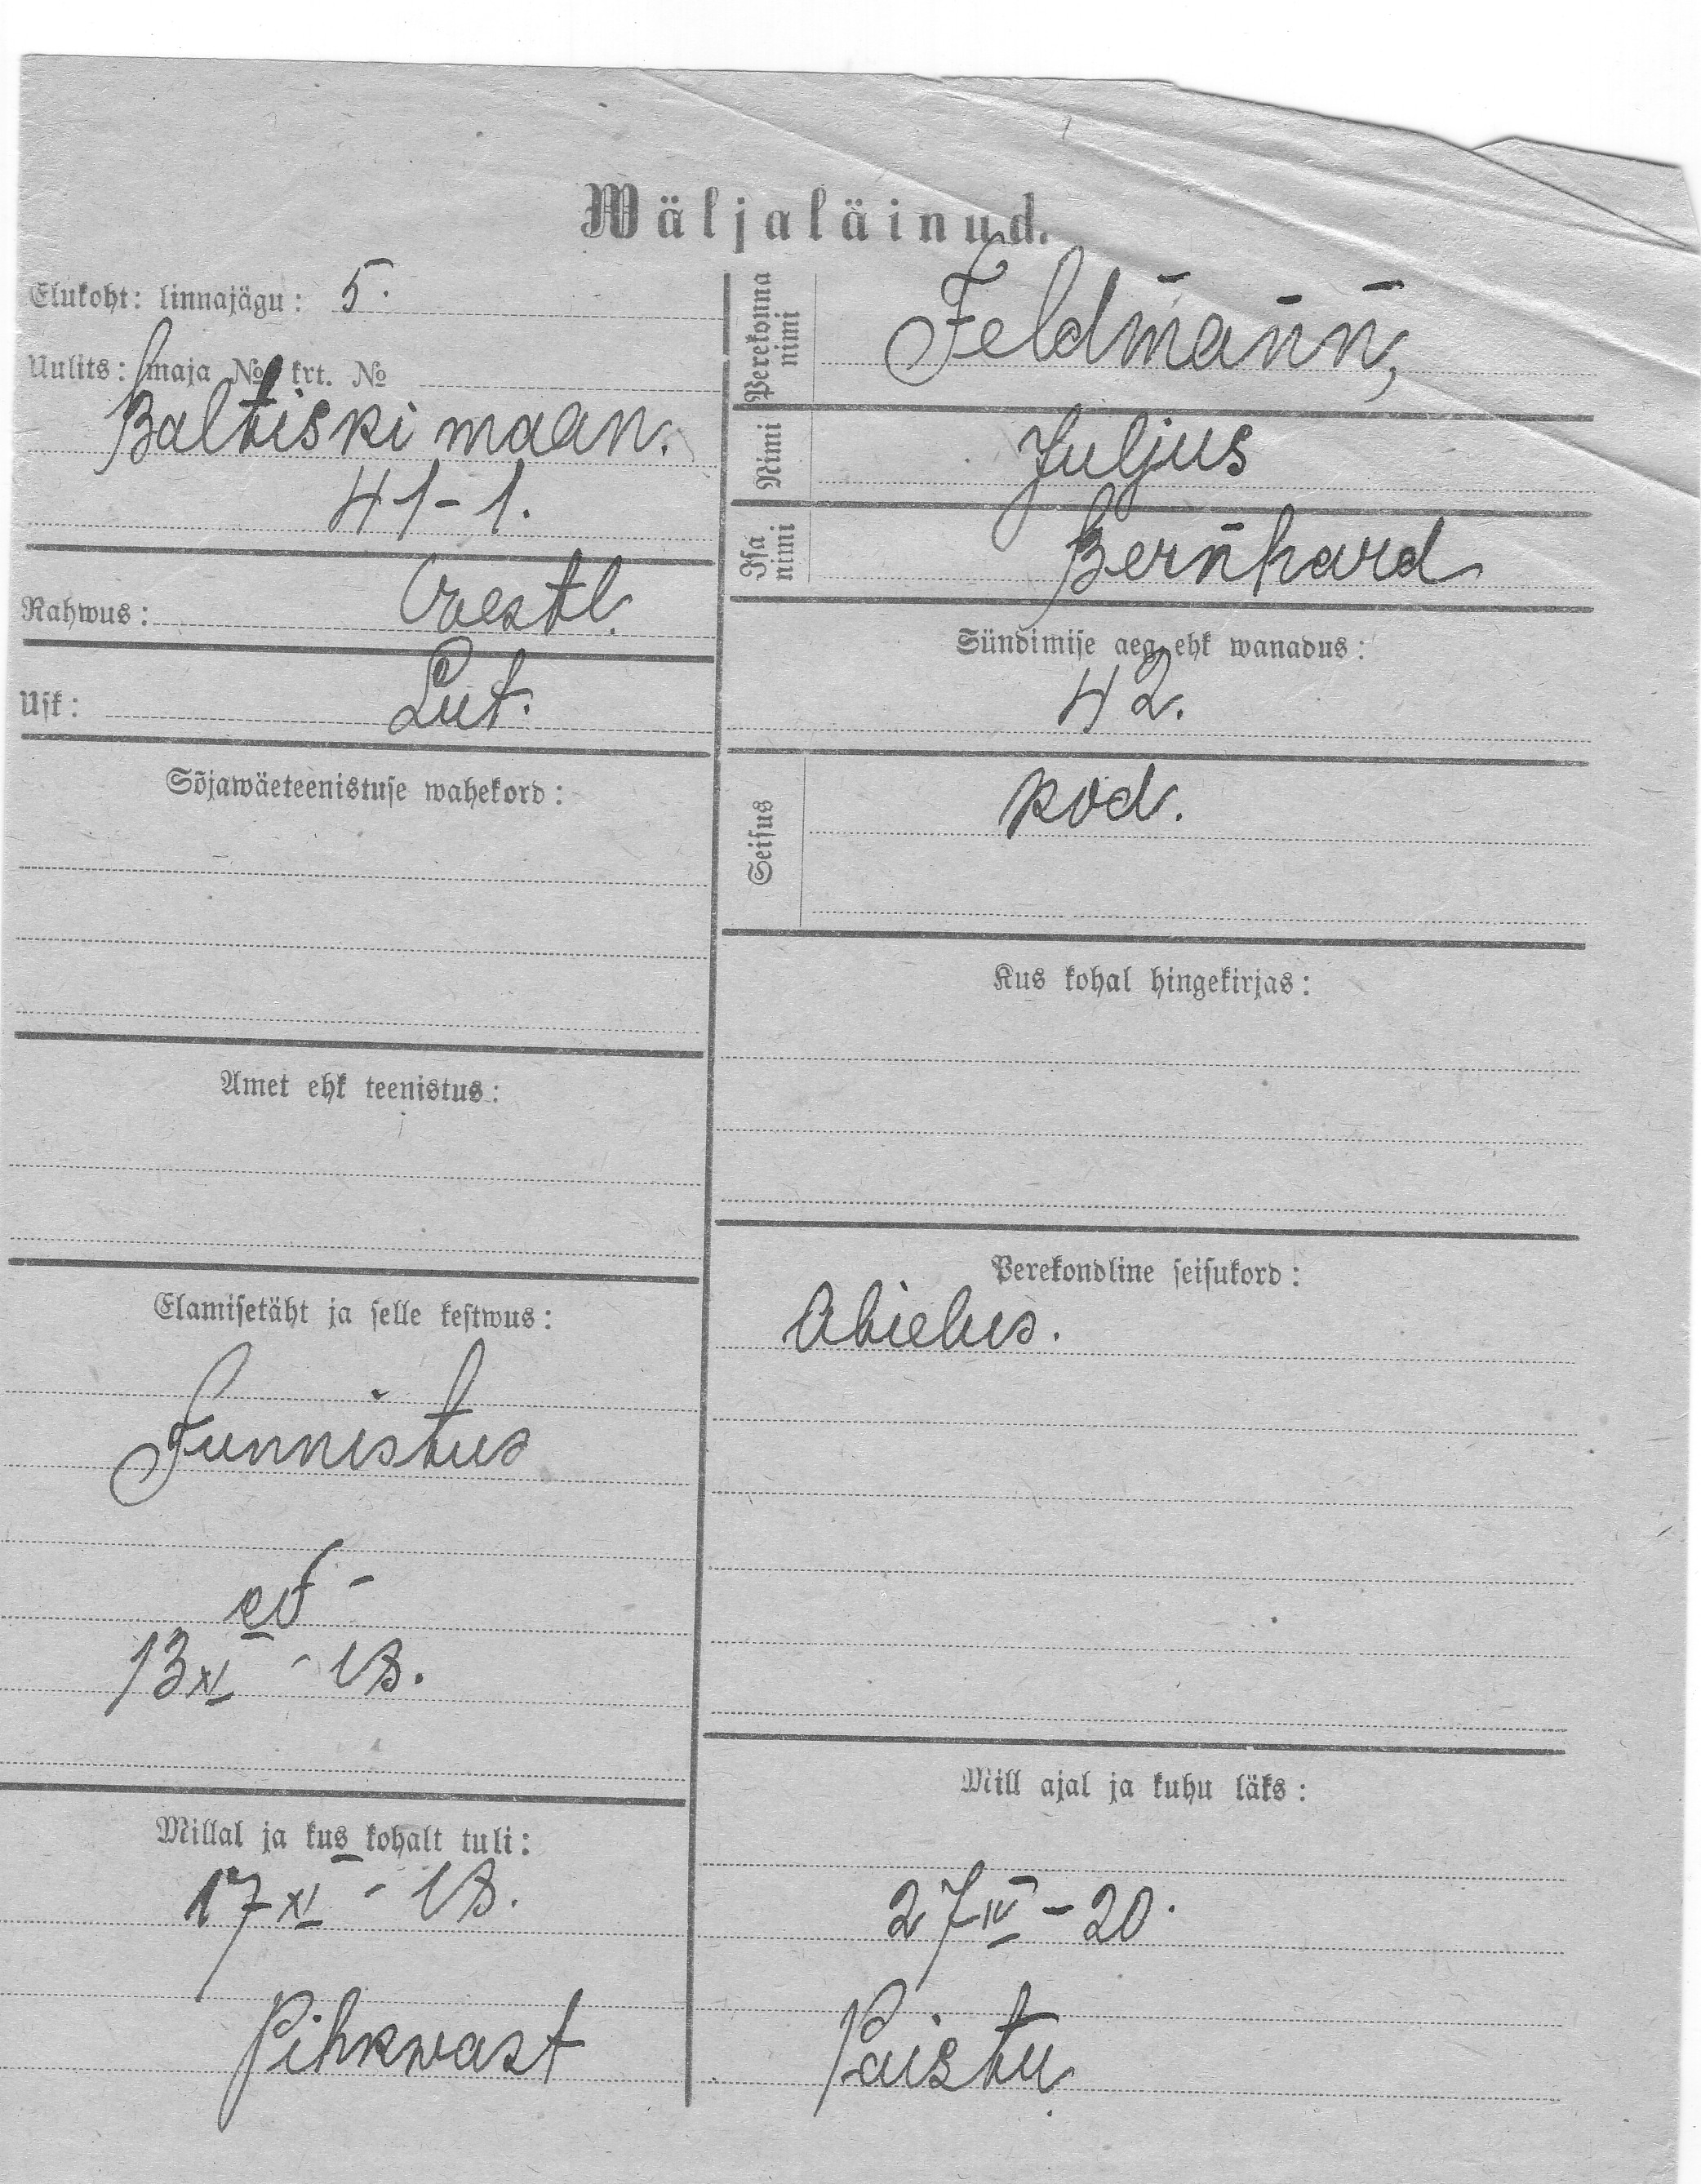 Wäljaläinud.
Elukoht: linnajägu: 5.
Uulits: maja № krt. №
Baltiski maan.
41-1.
Rahwus: eestl.
Usk: Lut.
Sõjawäeteenistuse wahekord:
Amet ehk teenistus:
Elamisetäht ja selle kestwus:
Tunnistus
13 XI - 18.
Millal ja kus kohalt tuli:
17 XI - 18.
Pihkwast
Perekonna nimi Feldmann,
Nimi Juljus
Isa nimi Bernhard
Sündimise aeg ehk wanadus:
42.
Seisus kod.
Kus kohal hingekirjas:
Perekondline seisukord:
Abielus.
Mill ajal ja kuhu läks:
27 IV - 20.
Paistu